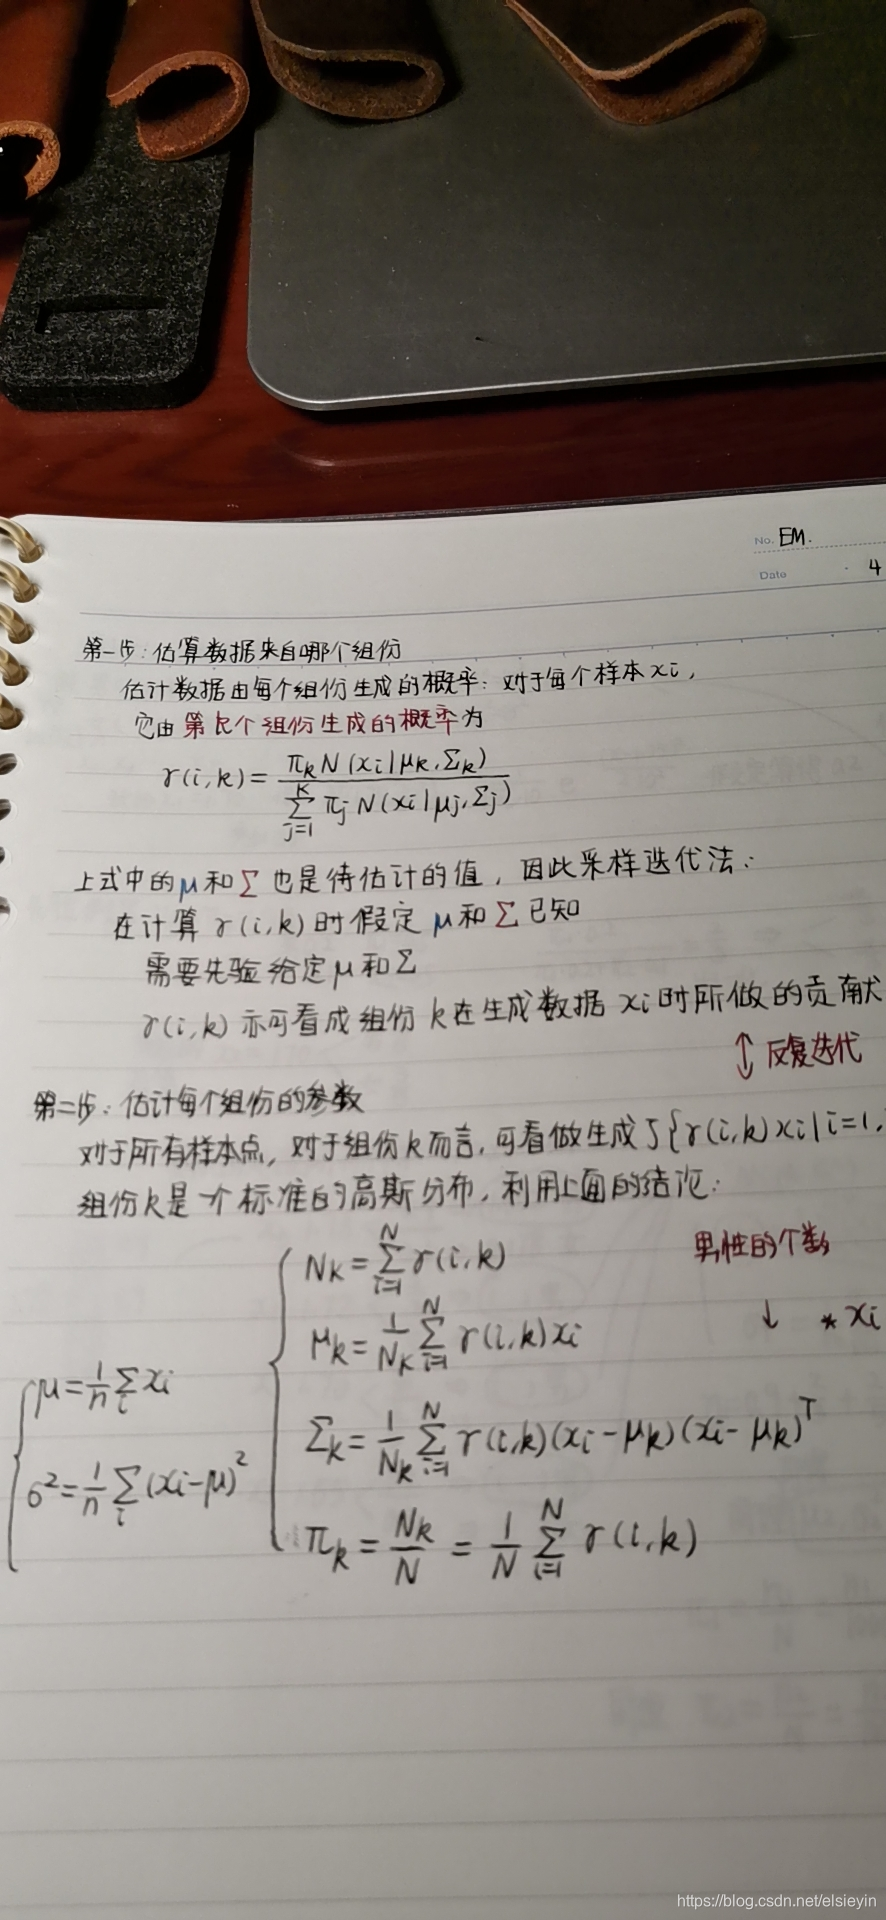 No. EM.
Date · 4
第一步:估算数据来自哪个组份
估计数据由每个组份生成的概率:对于每个样本xi,
它由第k个组份生成的概率为
γ(i,k)= πk N(xi|μk,Σk) / Σ_{j=1}^{K} πj N(xi|μj,Σj)
上式中的μ和Σ也是待估计的值,因此采样迭代法:
在计算γ(i,k)时假定μ和Σ已知
需要先验给定μ和Σ
γ(i,k)亦可看成组份k在生成数据xi时所做的贡献
↕反复迭代
第二步:估计每个组份的参数
对于所有样本点,对于组份k而言,可看做生成了{γ(i,k)xi|i=1,
组份k是一个标准的高斯分布,利用上面的结论:
男性的个数
↓ * xi
Nk=Σ_{i=1}^{N} γ(i,k)
μk=1/Nk Σ_{i=1}^{N} γ(i,k)xi
μ=1/n Σ_i xi
Σk=1/Nk Σ_{i=1}^{N} γ(i,k)(xi-μk)(xi-μk)^T
σ²=1/n Σ_i (xi-μ)²
πk=Nk/N=1/N Σ_{i=1}^{N} γ(i,k)
https://blog.csdn.net/elsieyin